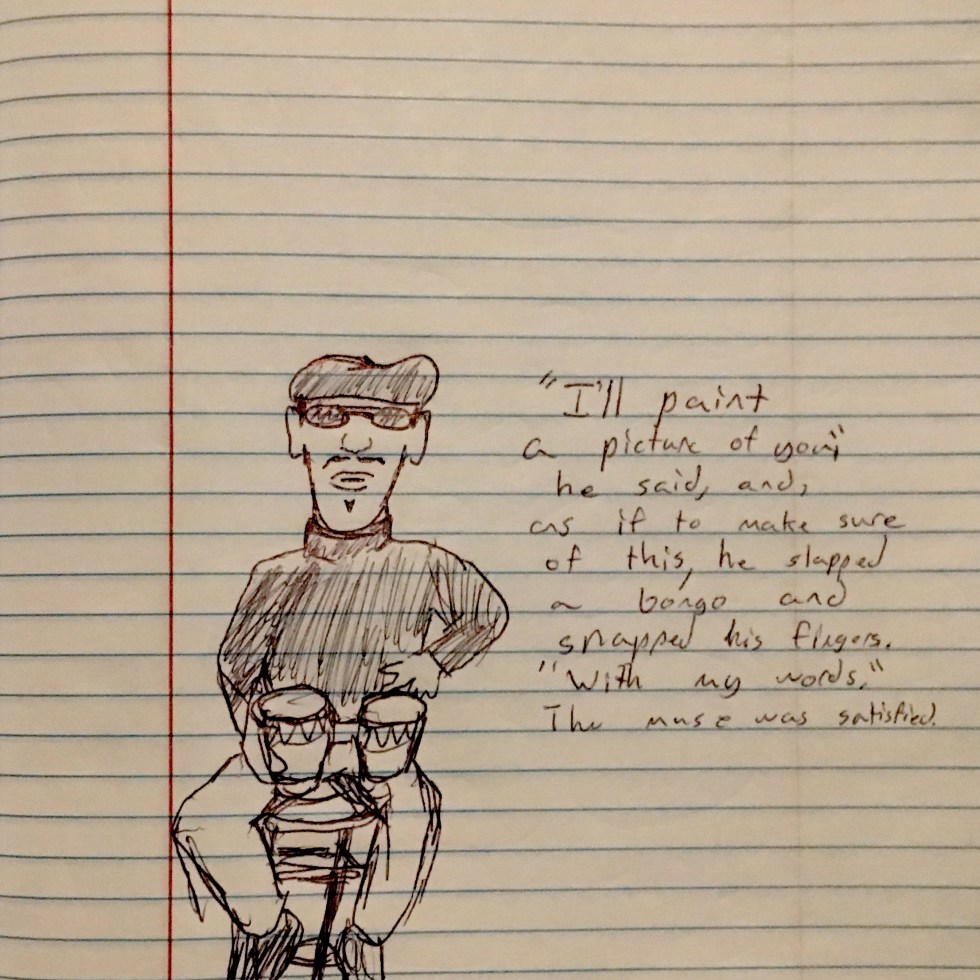 "I'll paint
a picture of you,"
he said, and,
as if to make sure
of this, he slapped
a bongo and
snapped his fingers.
"With my words."
The muse was satisfied.